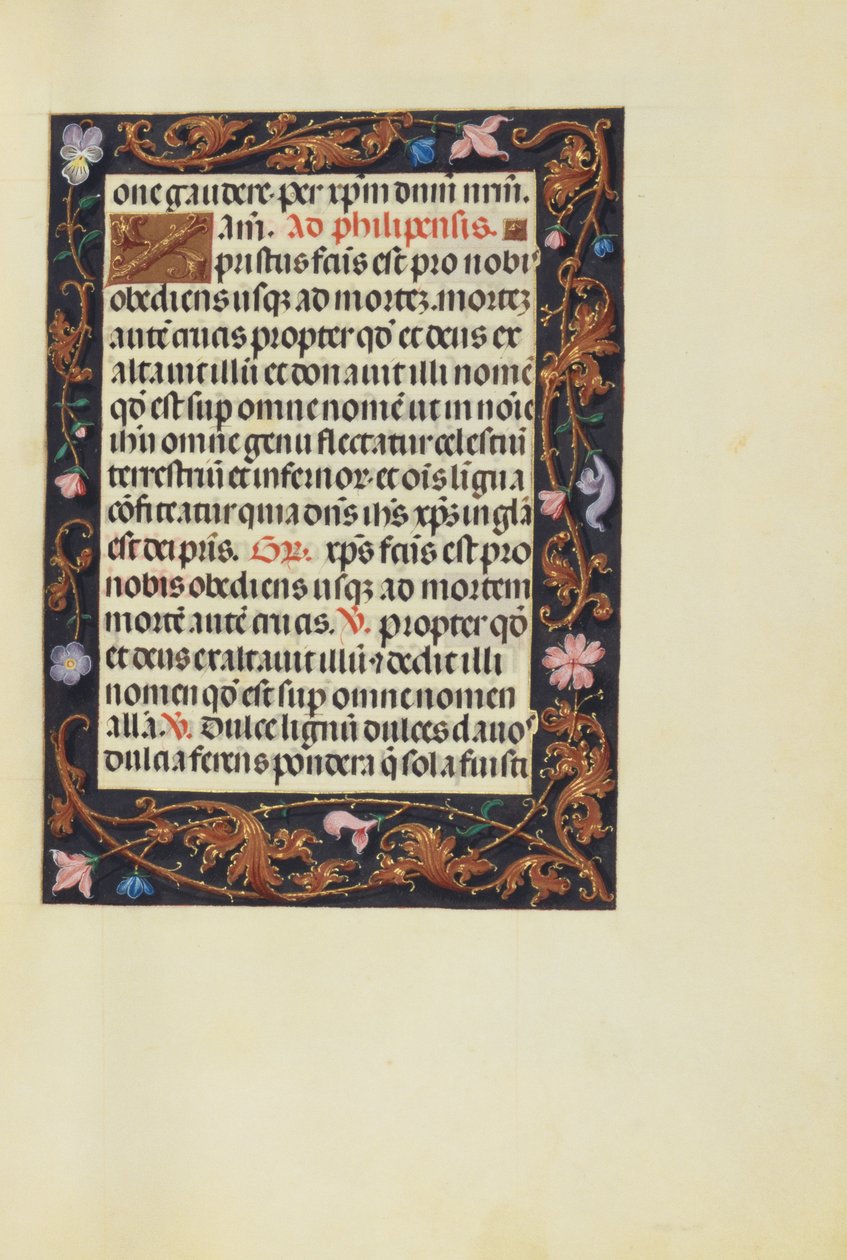 one gaudere. per xp̄m dnm̄ nr̄m.
Am̄. Ad philipensis.
Xpristus fcūs est pro nobis
obediens usqꝫ ad morteꝫ. morteꝫ
autē crucis propter qđ et deus ex
altavit illū et donavit illi nomē
qđ est sup̄ omne nomē ut in noīe
ihū omne genu flectatur celestiū
terrestriū et infernoꝝ. et oīs līgua
cōfiteatur quia dn̄s ihs̄ xp̄s in glā
est dei pr̄is. Gr̄. xp̄s fcūs est pro
nobis obediens usqꝫ ad mortem
mortē autē crucis. V̄. propter qđ
et deus exaltavit illū ⁊ dedit illi
nomen qđ est sup̄ omne nomen
allā. V̄. Dulce lignū dulces clavos
dulcia ferens pōndera q̄ sola fuisti